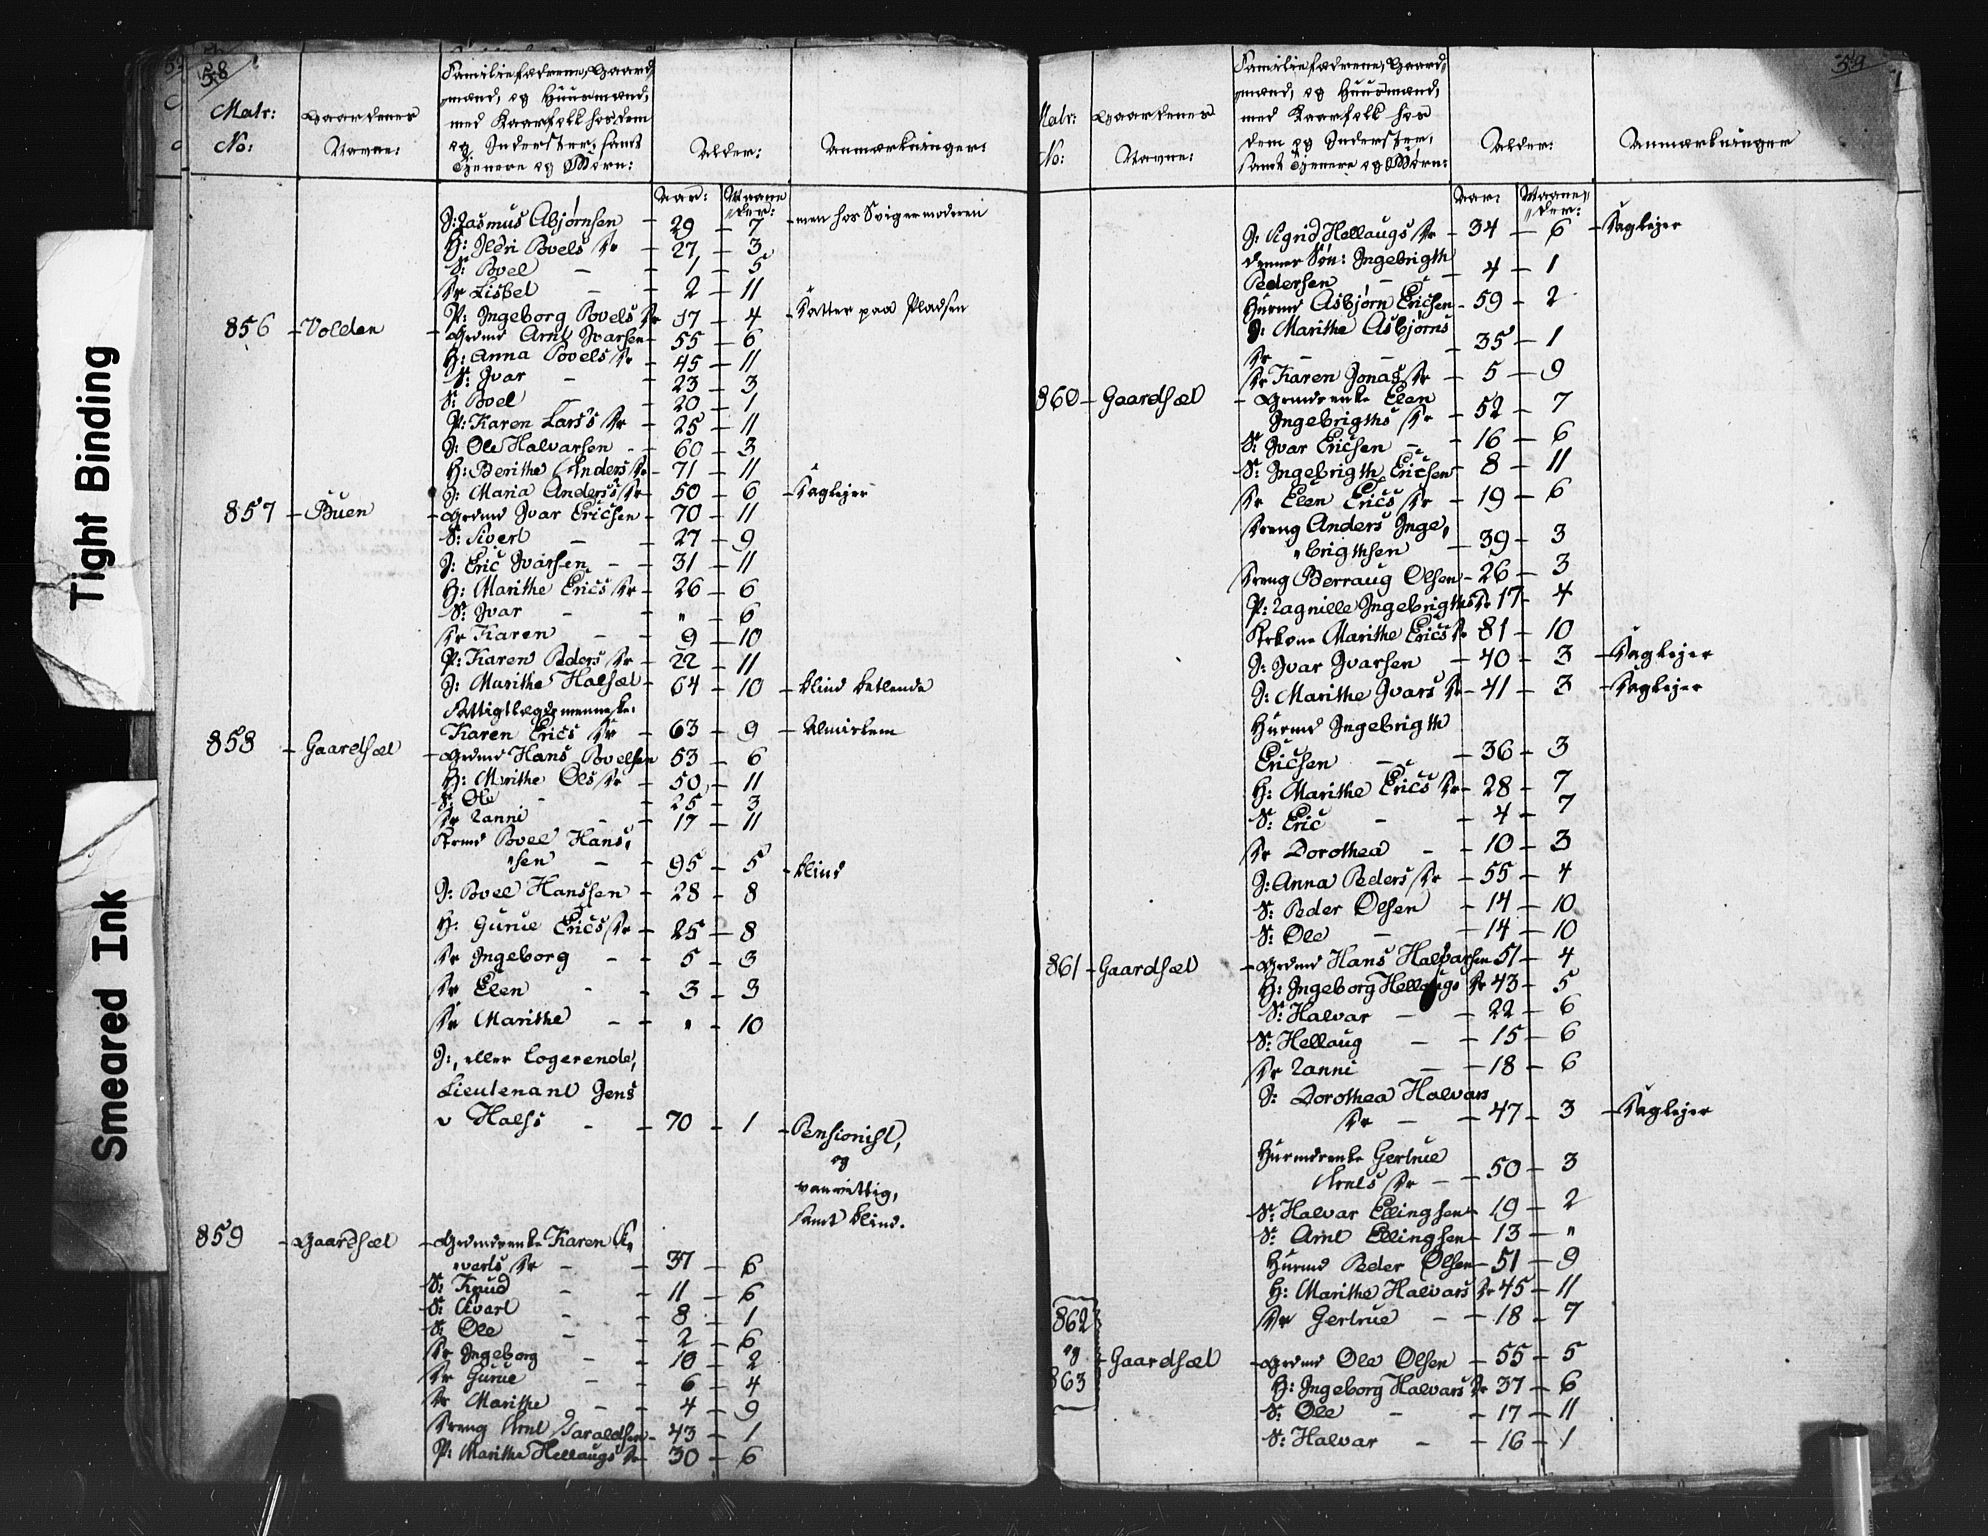 58
Matr: No: Gaardenes Navne: Familiefædrene, Gaard-
mænd, og Huusmænd,
med Kaarfolk hos dem
og Inderster, samt
Tjenere og Børn:
Alder: Anmærkninger:
Aar: Maane
der:
I: Rasmus Asbjørnsen 29 7 men hos Svigermoderen
H: Ildri Povels Dr 27 3
S: Povel 1 5
Dr Lisbet 2 11
P: Ingeborg Povels Dr 17 4 Datter paa Pladsen
856 Volden Grdmd Arnt Ivarsen 55 6
H: Anna Povels Dr 45 11
S: Ivar 23 3
S: Povel 20 1
P: Karen Lars's Dr 25 11
I: Ole Halvarsen 60 3
H: Berithe Anders Dr 71 11
I: Maria Anders's Dr 50 6 Daglejer
857 Buen Grdmd Ivar Ericsen 70 11
S: Sivert 27 9
I: Eric Ivarsen 31 11
H: Marithe Erics Dr 26 6
S: Ivar " 6
Dr Karen 9 10
P: Karen Peders Dr 22 11
I: Marithe Halsæt 64 10 blind betlende
Fattiglægdsmenneske:
Karen Erics Dr 63 9 Almislem
858 Gaardsæt Grdmd Hans Povelsen 53 6
H: Marithe Ols Dr 50 11
S: Ole 25 3
Dr Ranni 17 11
Krmd Povel Hans,
"sen 95 5 blind
I: Povel Hanssen 28 8
H: Gurue Erics Dr 25 8
Dr Ingeborg 5 3
Dr Elen 3 3
Dr Marithe " 10
I:, eller Logerende,
Lieutenant Jens
v Halss 70 1 Pensionist,
og
vanvittig,
samt blind.
859 Gaardsæt Grdmdenke Karen Si,
"verts Dr 37 6
S: Knud 11 6
S: Sivart 8 1
S: Ole 2 6
Dr Ingeborg 10 2
Dr Gurue 6 4
Dr Marithe 4 9
Dreng Arnt Haraldsen 43 1
P: Marithe Hellaugs Dr 30 6
59
Matr: No: Gaardenes Navne: Familiefædrene, Gaard-
mænd, og Huusmænd,
med Kaarfolk hos
dem og Inderster,
samt Tjenere og Børn:
Alder: Anmærkninger
Aar: Maane,
"der:
I: Sigrid Hellaugs Dr 34 6 Daglejer
dennes Søn: Ingebrigth
Pedersen 4 1
Husmd Asbjørn Ericsen 59 2
I: Marithe Asbjørns
Dr 35 1
Dr Karen Jonas Dr 5 9
860 Gaardsæt Grmdrenke Elen
Ingebrigths Dr 52 7
S: Ivar Ericsen 16 6
S: Ingebrigth Ericsen 8 11
Dr Elen Erics Dr 19 6
Dreng Anders Inge,
"brigthsen 39 3
Dreng Berraug Olsen 26 3
P: Ragnille Ingebrigths Dr 17 4
Krkone Marithe Erics Dr 81 10
I: Ivar Ivarsen 40 3 Daglejer
I: Marithe Ivars Dr 41 3 Daglejer
Husmd Ingebrigth
Ericsen 36 3
H: Marithe Erics Dr 28 7
S: Eric 4 7
Dr Dorothea 10 3
I: Anna Peders Dr 55 4
S: Peder Olsen 14 10
S: Ole 14 10
861 Gaardsæt Grdmd Hans Halvarsen 51 4
H: Ingeborg Hellaugs Dr 43 5
S: Halvar 22 6
S: Hellaug 15 6
Dr Ranni 18 6
I: Dorothea Halvars
Dr 47 3 Daglejer
Husmdrenke Gertrue
Arnts Dr 50 3
S: Halvar Ellingsen 19 2
S: Arnt Ellingsen 13 "
Husmd Peder Olsen 51 9
H: Marithe Halvars Dr 45 11
Dr Gertrue 18 7
862
og
863 Gaardsæt Grdmd Ole Olsen 55 5
H: Ingeborg Halvars Dr 37 6
S: Ole 17 11
S: Halvar 16 1
Tight Binding
Smeared Ink